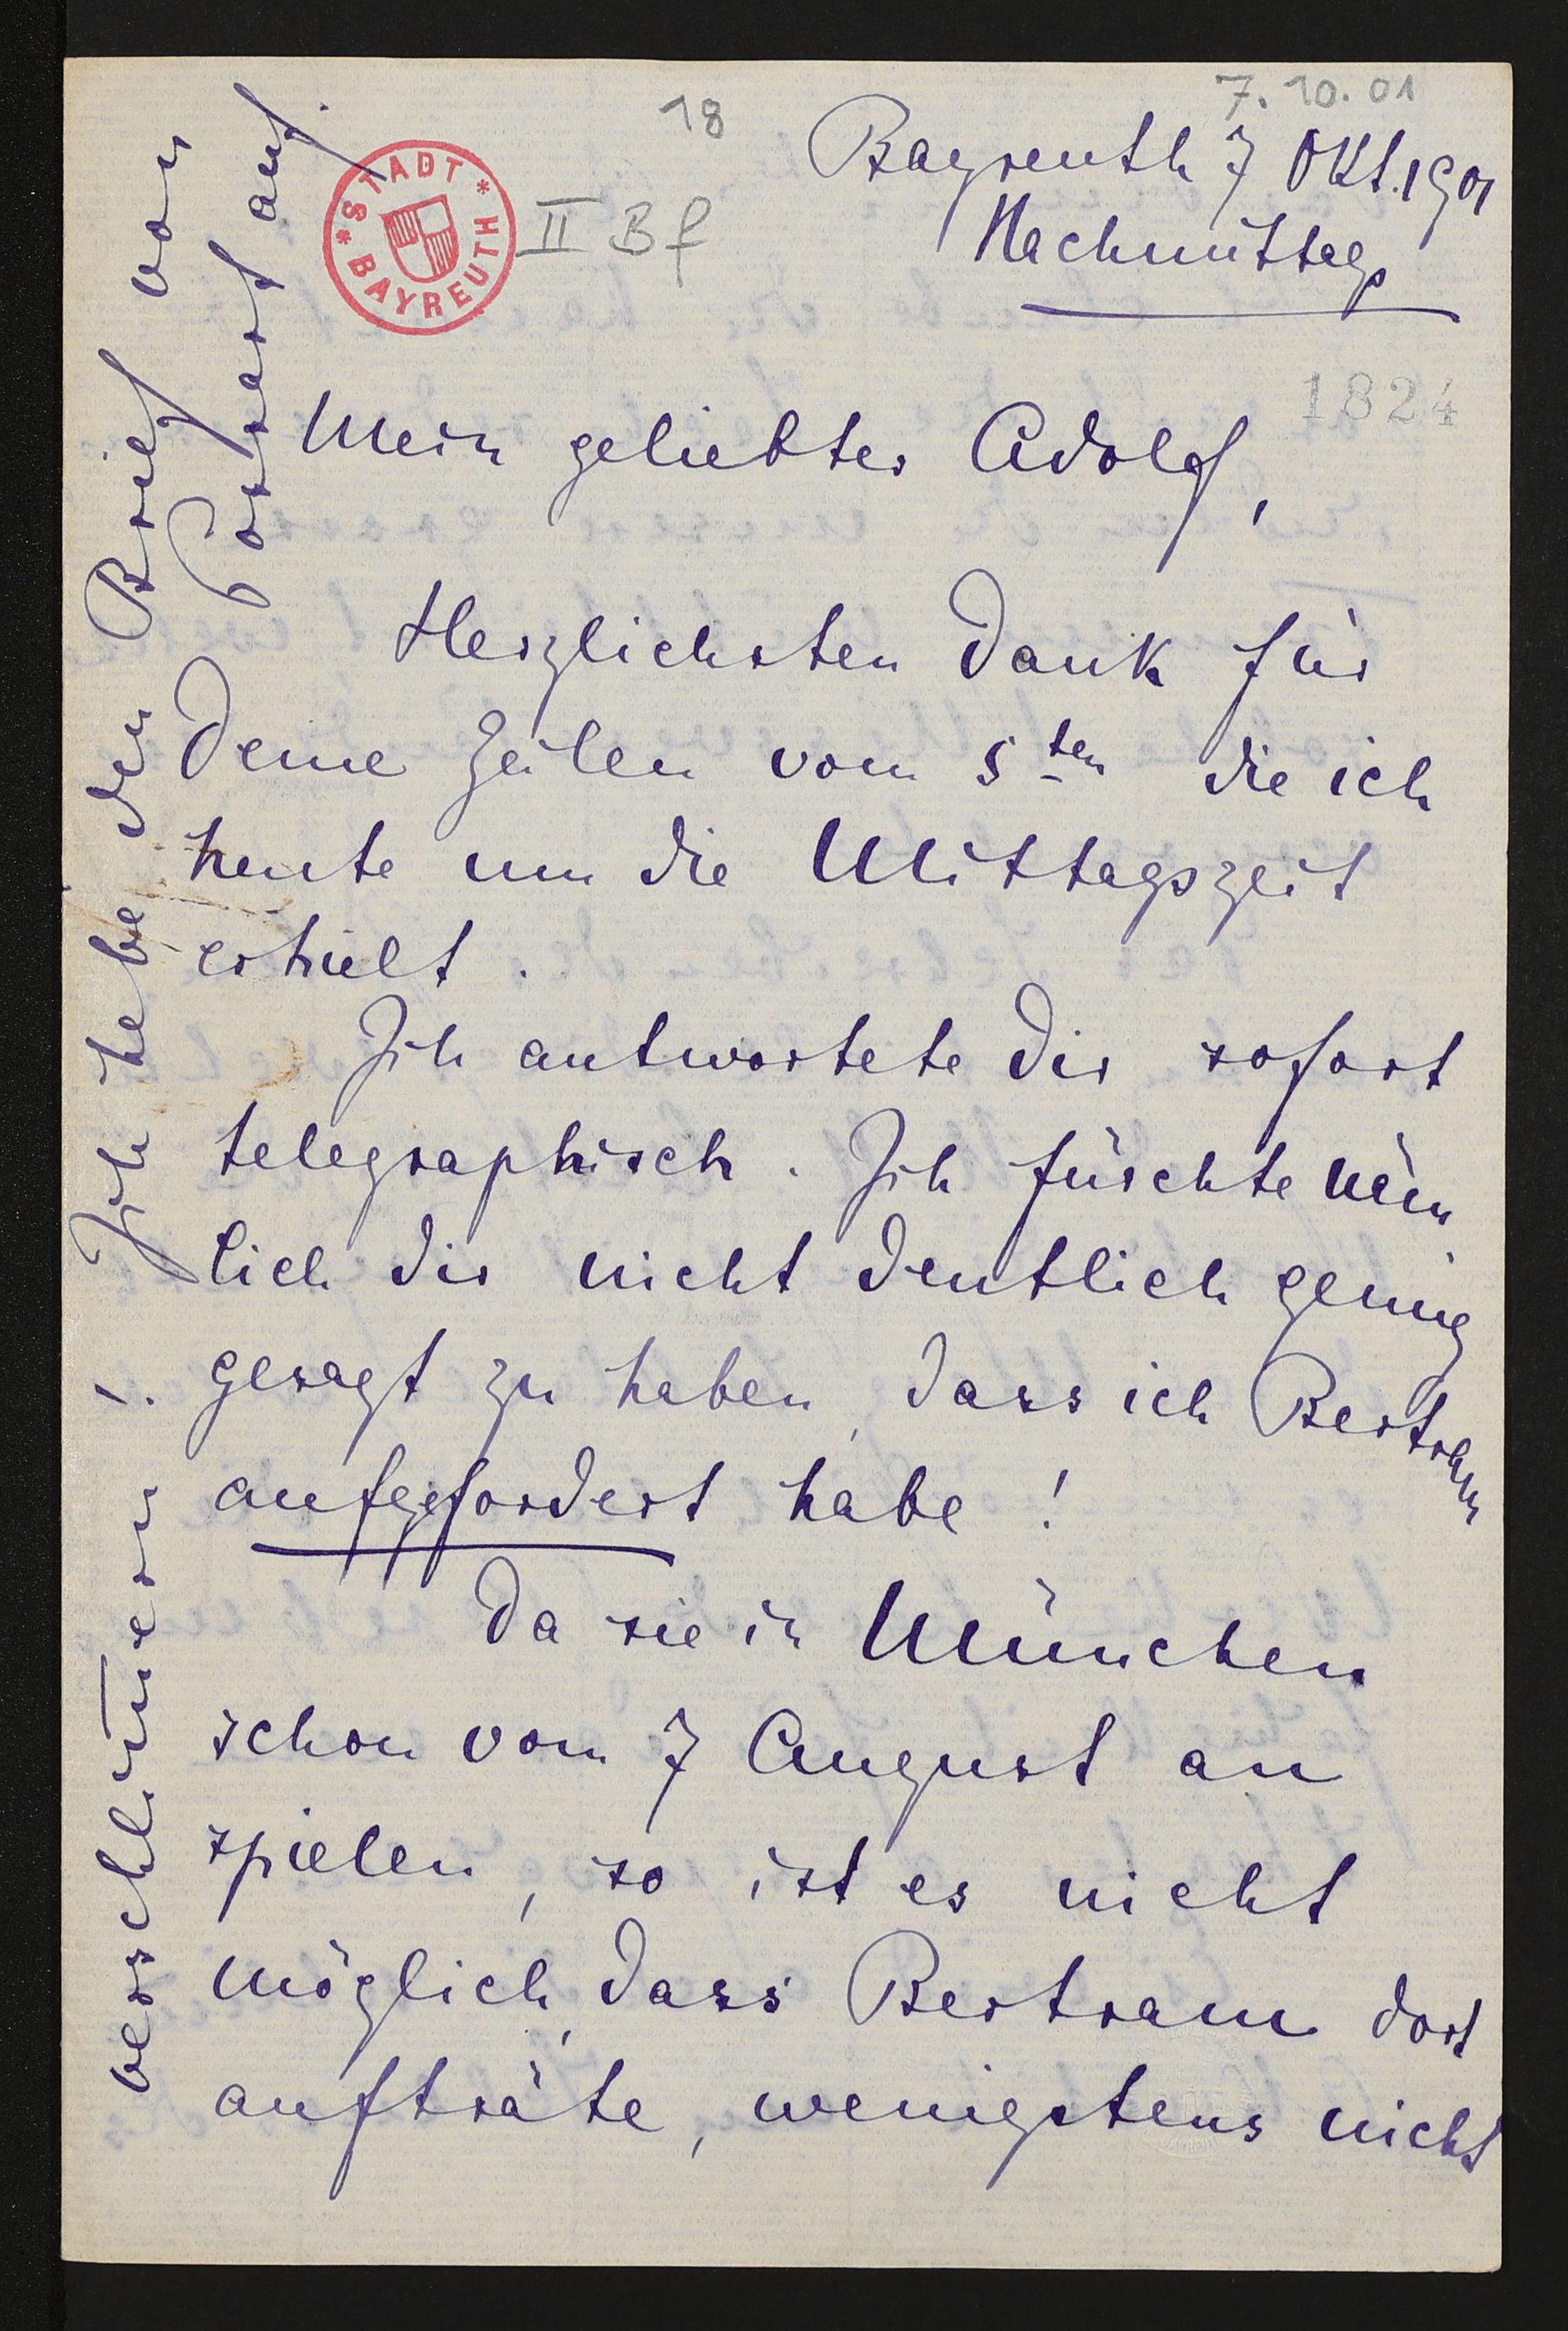 7.10.01
18
Bayreuth 7 Okt. 1901
Nachmittags
STADT BAYREUTH
II Bf
1824
Mein geliebter Adolf,
Herzlichsten Dank für
Deine Zeilen vom 5ten die ich
heute um die Mittagszeit
erhielt.
Ich antwortete Dir sofort
telegraphisch. Ich fürchte näm
lich dir nicht deutlich genug
gesagt zu haben, dass ich Bertram
aufgefordert habe!
Da sie in München
schon vom 7 August an
spielen, so ist es nicht
möglich, dass Bertram dort
aufträte, wenigstens nicht
verschlimmern!. Ich hebe den Brief von
Possart auf.